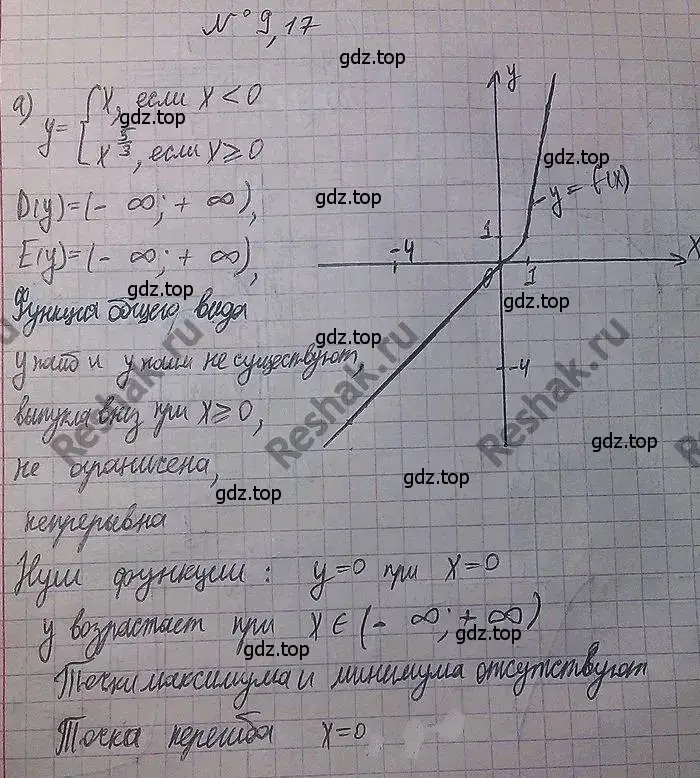 № 9,17
а) y = { x, если x < 0
x^(5/3), если x ≥ 0
D(y) = (- ∞; + ∞),
E(y) = (- ∞; + ∞),
Функция общего вида
y наиб и y наим не существуют,
выпукла вниз при x ≥ 0,
не ограничена,
непрерывна
Нули функции : y = 0 при x = 0
y возрастает при x ∈ (- ∞; + ∞)
Точки максимума и минимума отсутствуют
Точка перегиба x = 0
y
y = f(x)
1
-4
0
1
x
-4
gdz.top
gdz.top
gdz.top
gdz.top
gdz.top
gdz.top
gdz.top
gdz.top
gdz.top
gdz.top
gdz.top
gdz.top
gdz.top
gdz.top
Reshak.ru
Reshak.ru
Reshak.ru